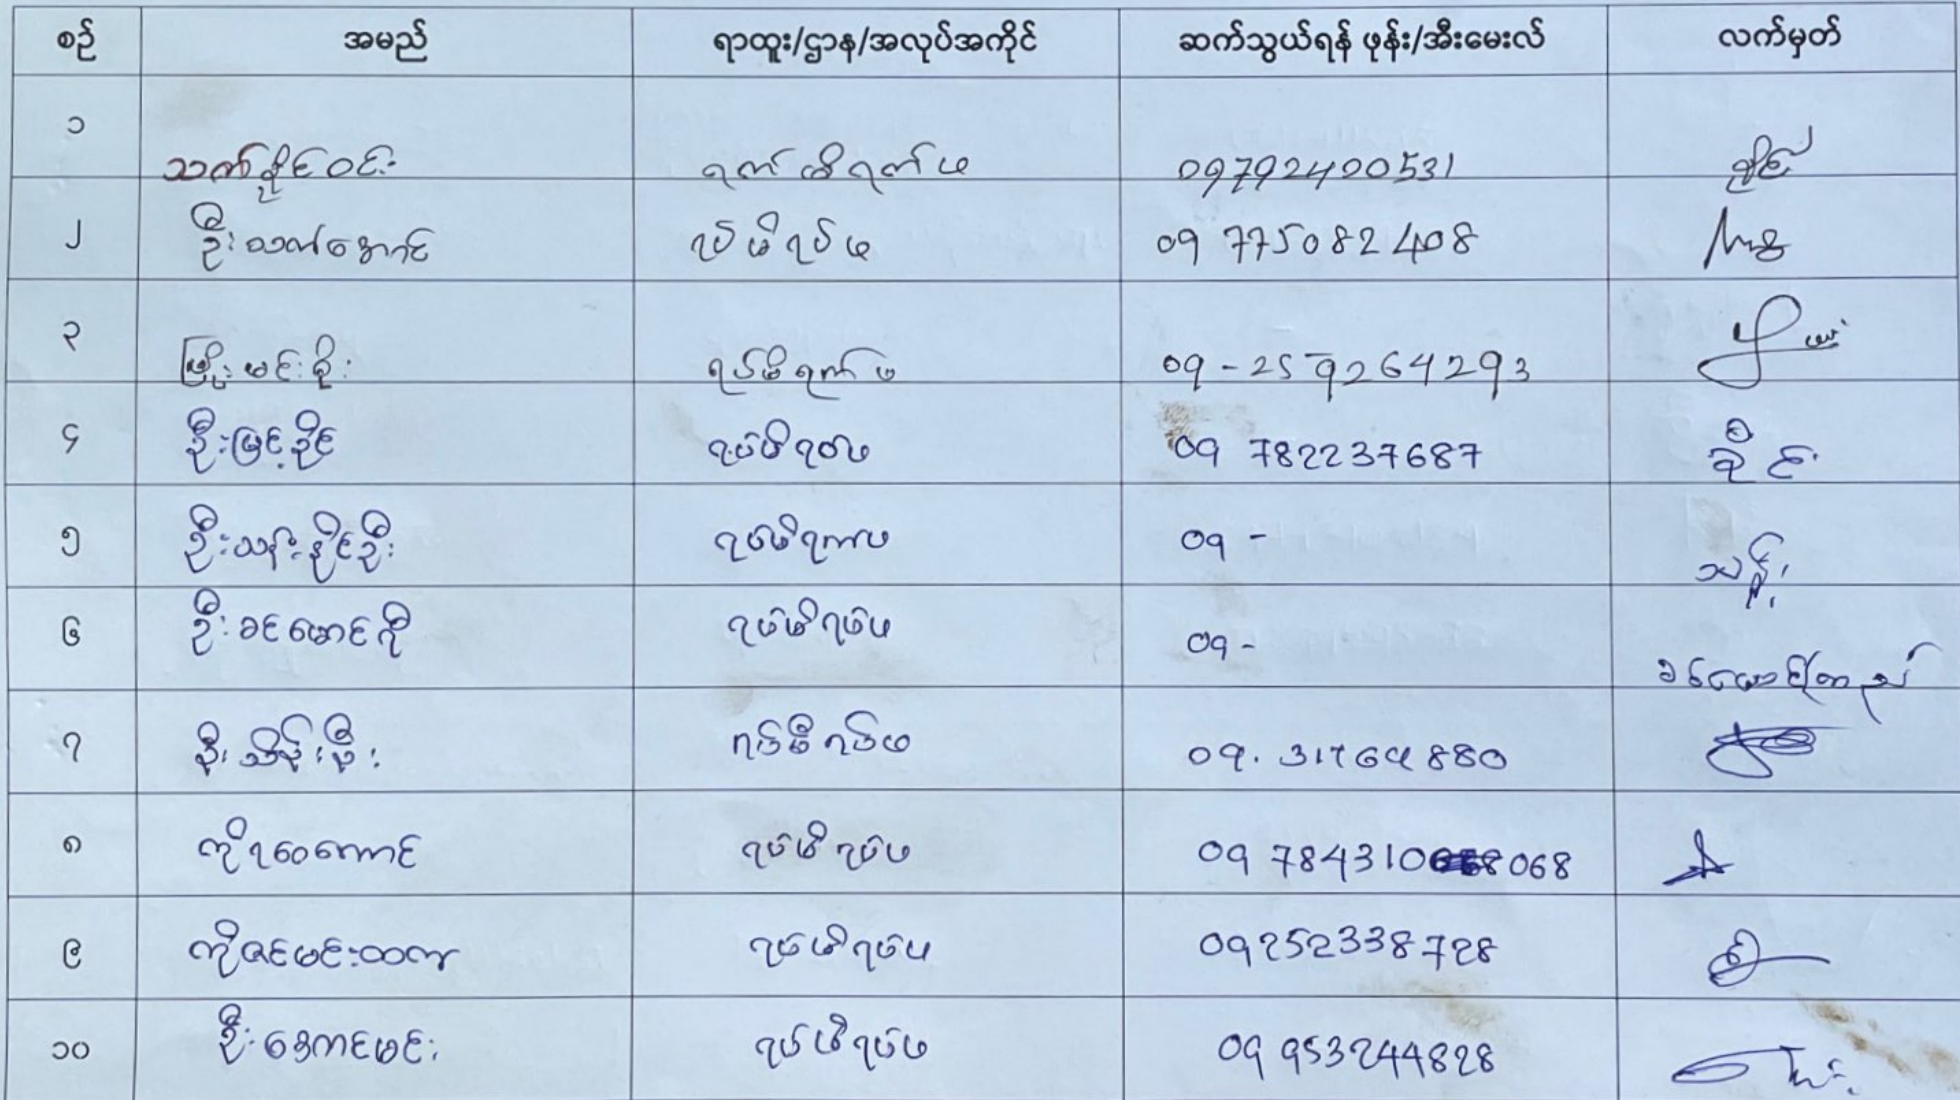 စဉ် အမည် ရာထူး/ဌာန/အလုပ်အကိုင် ဆက်သွယ်ရန် ဖုန်း/အီးမေးလ် လက်မှတ်
၁ သက်နိုင်ဝင်း 09792400531 နိုင်
၂ ဦးသက်အောင် ရပ်မိရပ်ဖ 09 775082408
၃ ဖြိုးမင်းစိုး ရပ်မိရပ်ဖ 09-259264293
၄ ဦးမြင့်ခိုင် ရပ်မိရပ်ဖ 09 782237687 ခိုင်
၅ ဦးသန်းနိုင်ဦး ရပ်မိရပ်ဖ 09 - သန်း
၆ ဦးခင်မောင်ကို ရပ်မိရပ်ဖ 09 -
၇ ဦးသိန်းဖီး ရပ်မိရပ်ဖ 09. 31764880
၈ ကိုရဝေအောင် ရပ်မိရပ်ဖ 09 784310 068
၉ ကိုဇင်မင်းထက် ရပ်မိရပ်ဖ 09252338728
၁၀ ဦးဒေကင်မင်း ရပ်မိရပ်ဖ 09 953244828